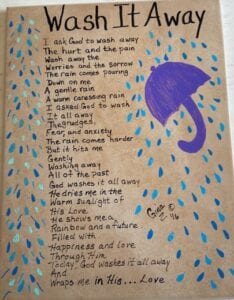 Wash It Away
I ask God to wash away
The hurt and the pain
Wash away the
Worries and the sorrow
The rain comes pouring
Down on me
A gentle rain
A warm caressing rain
I asked God to wash
It all away
The grudges,
Fear, and anxiety
The rain comes harder
But it hits me
Gently
Washing away
All of the past
God washes it all away
He dries me in the
Warm sunlight of
His Love
He shows me a
Rainbow and a future
Filled with
Happiness and love
Through Him
Today, God washes it all away
And
Wraps me in His....Love